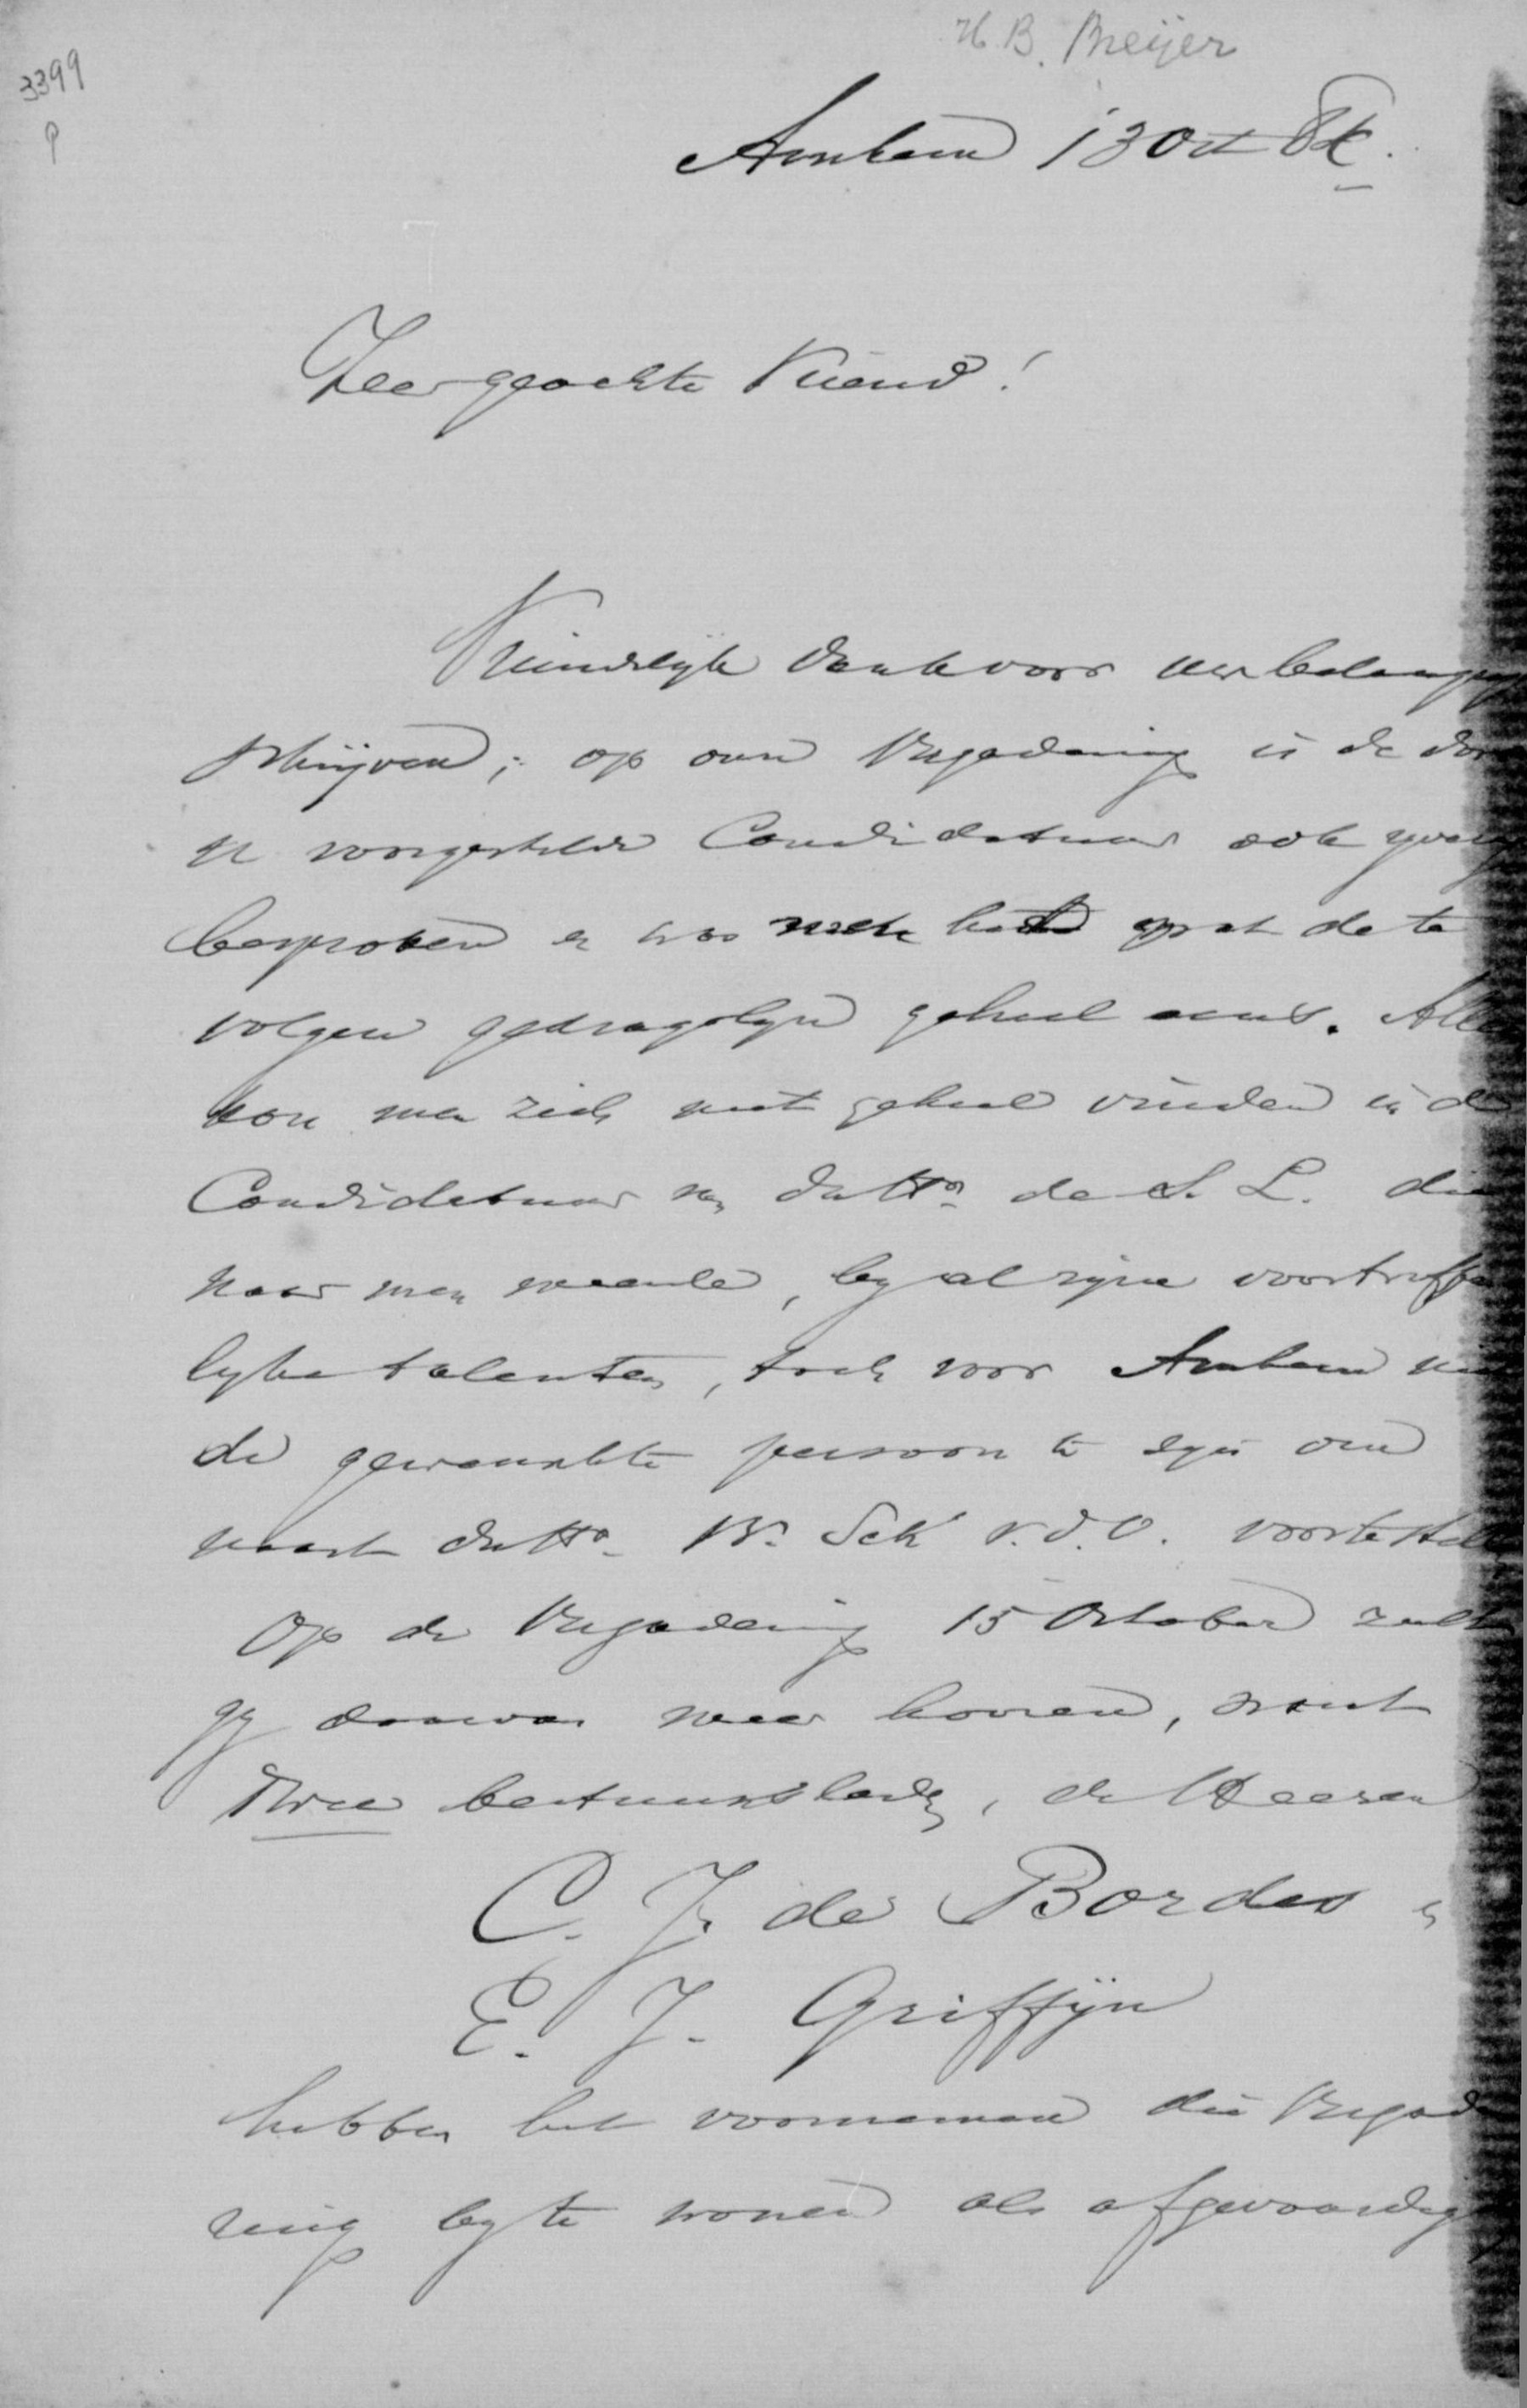 H. B. Breijer
3399
P
Arnhem 13 Oct
Zeer geachte Vriend!
Vriendelijk dank voor uw belangryk
schrijven; op onze Vergadering is de door
U voorgestelde Candidatuur ook
besproken en was men het omtrent de te
volgen gedragslyn geheel eens. Alleen
kon men zich niet geheel vinden in de
Candidatuur van de S. L. die
naar men meende, by al zijne voortreffe
lyke talenten, toch voor Arnhem niet
de gewenschte persoon te zyn om
naast B. Sch v. d. O. voor te stellen
Op de Vergadering 15 October zult
gy daarvan meer hooren, want
Twee bestuursleden, de Heeren
C. J. de Bordes en
E. J. Griffijn
hebben het voornemen die Vergade
ring by te wonen als afgevaardigden